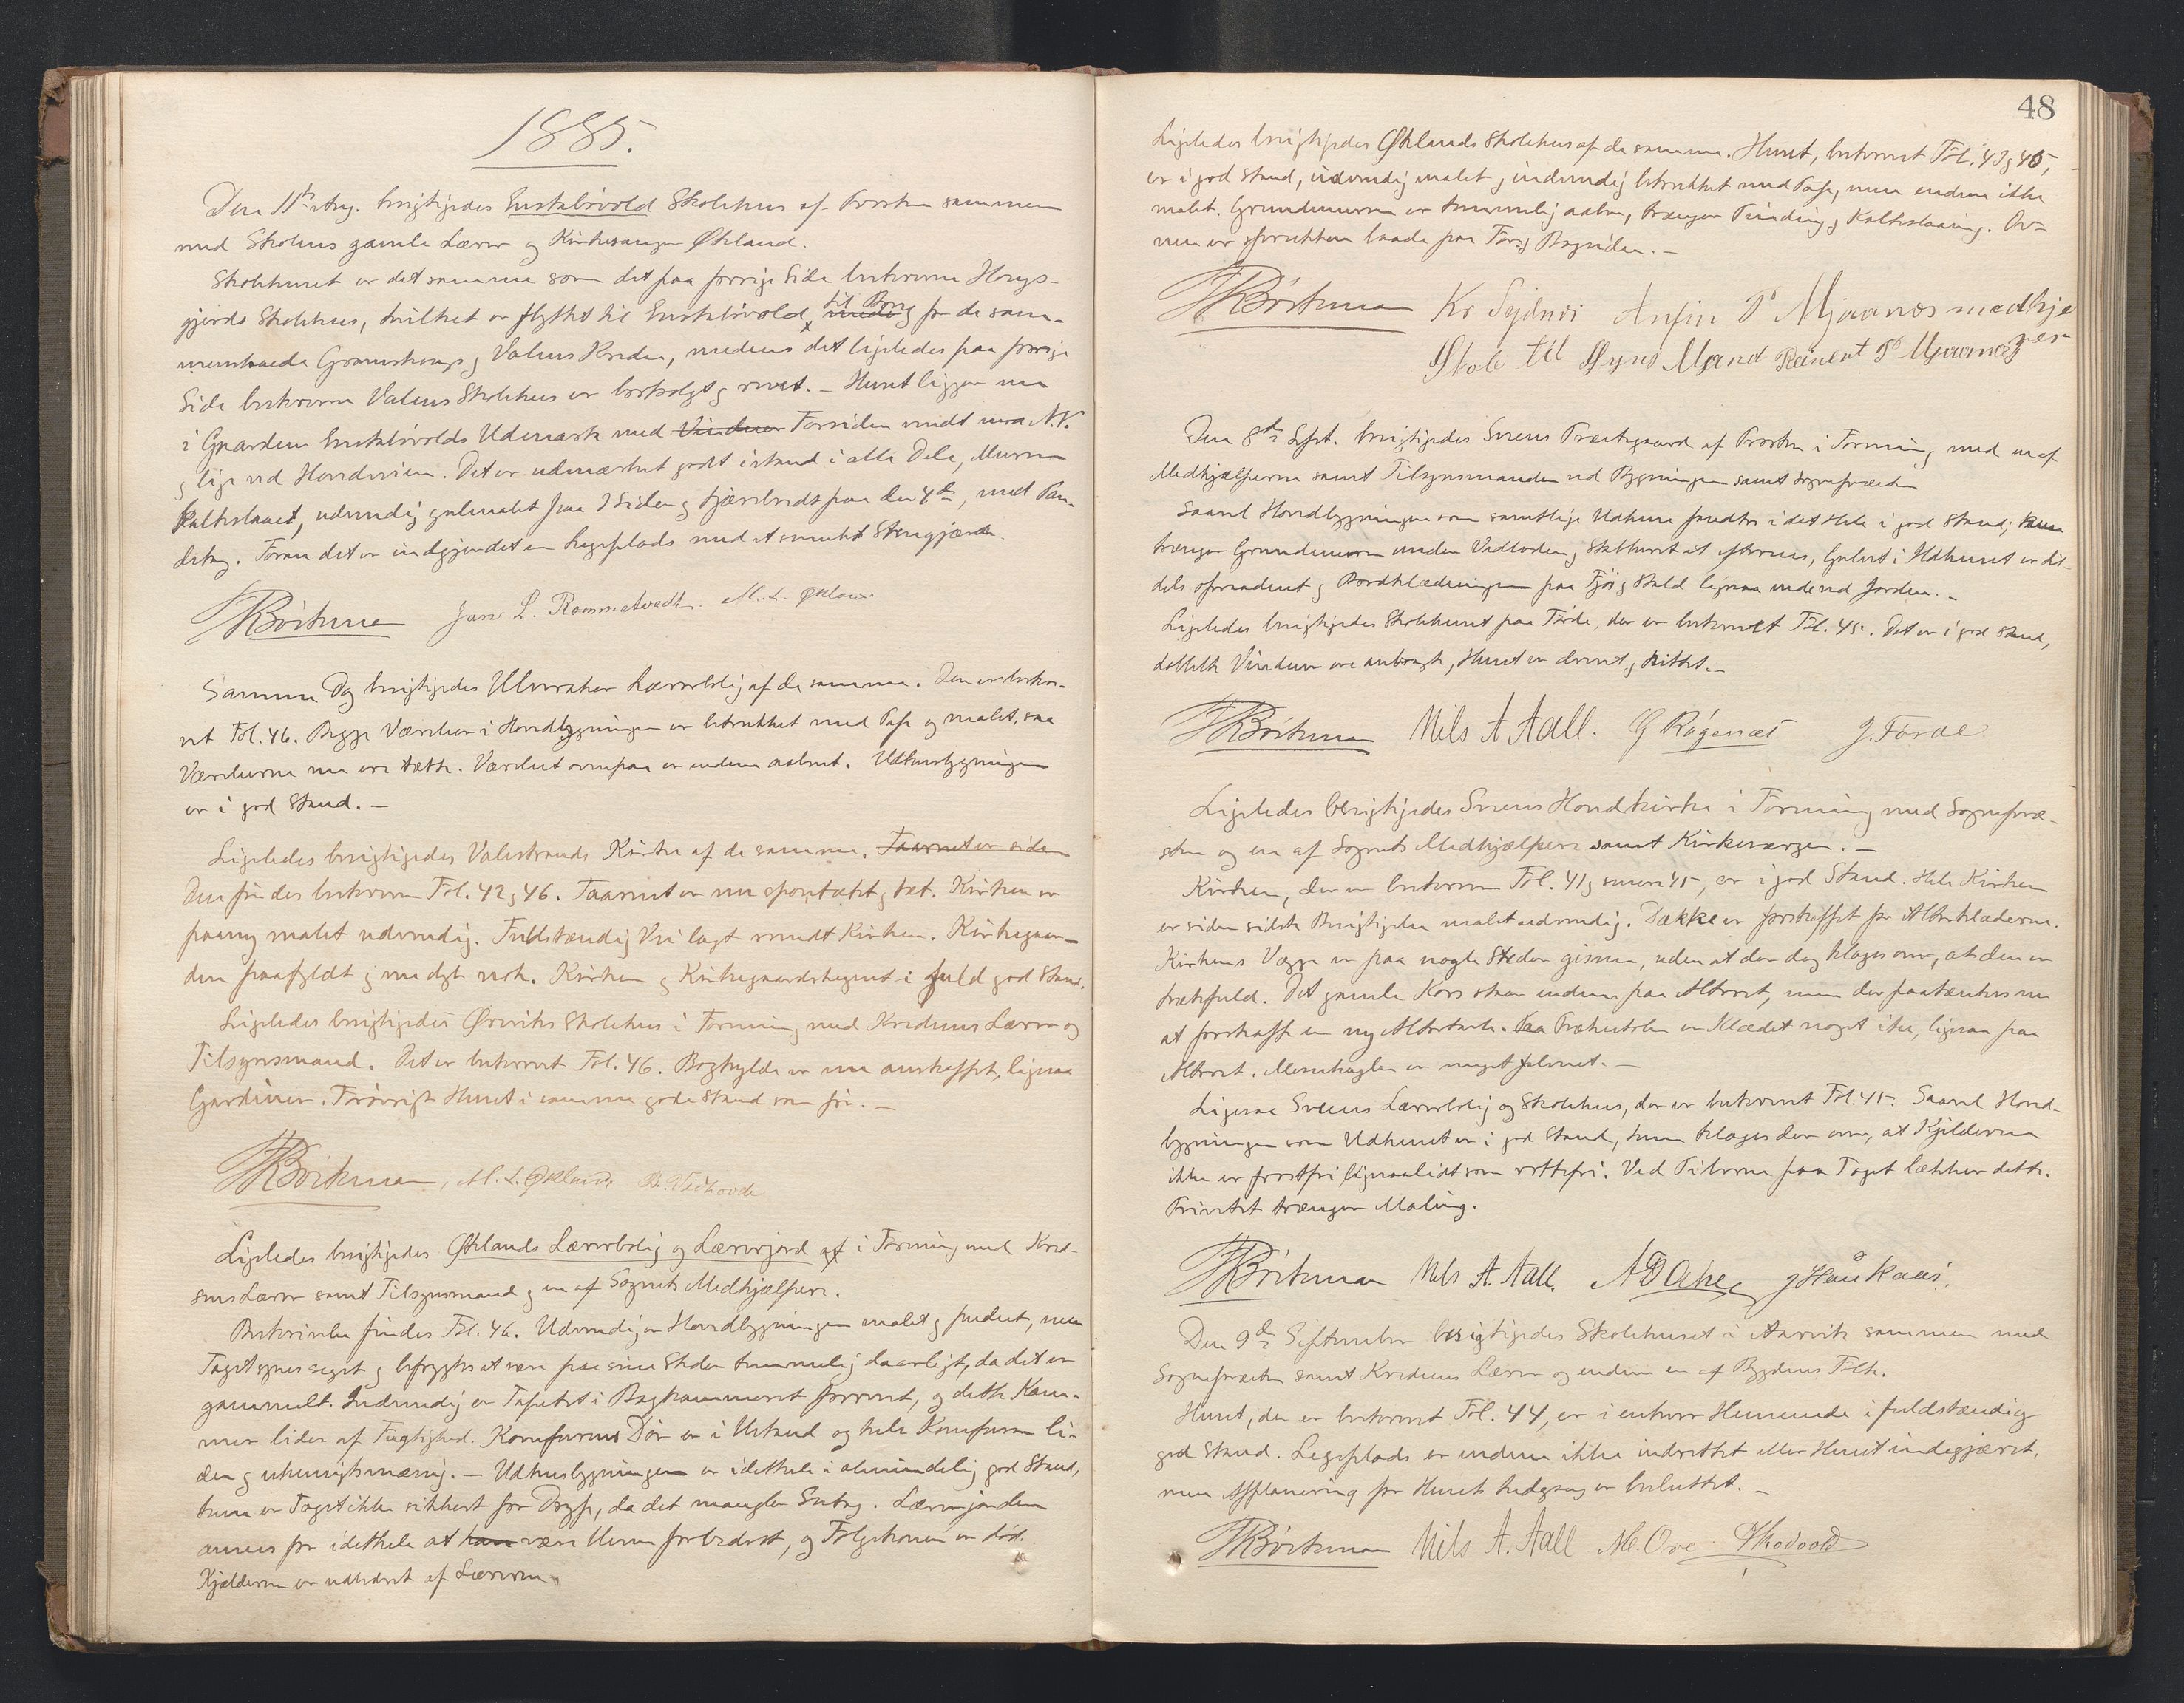 1885.
Den 11te Aug. besigtigedes Enstabövold Skolehus af Provsten sammen
med Skolens gamle Lærer og Kirkesanger Økland.
Skolehuset er det samme som det paa forrige Side beskrevne Hougs-
gjerds Skolehus, hvilket er flyttet til Enstabövold, til Brug for de sam-
menslaaede Gramshougs og Valens Kredse, medens det ligeledes paa forrige
Side beskrevne Valens Skolehus er bortsolgt og revet. – Huset ligger nu
i Gaarden Enstabövolds Udmark med Vinduer Forsiden vendt mod N.V.
og lige ved Hovedveien. Det er udmærket godt istand i alle Dele, Muren
kalkslaaet, udvendig gulmalet paa 3 Sider og tjærebredt paa den 4de, med Pan-
detag. Foran det er indgjerdet en Legeplads med et smukt Stengjærde.
JRBörtman Jans L. Rommetvedt. M. L. Økland
Samme Dag besigtigedes Ulveraker Lærerbolig af de samme. Den er beskre-
vet Fol. 46. Begge Værelser i Hovedbygningen er betrukket med Pap og malet, saa
Værelserne nu ere tætte. Værelset ovenpaa er endnu aabent. Udhusbygningen
er i god Stand. –
Ligeledes besigtigedes Valestrands Kirke af de samme. Taarnet er siden
Den findes beskreven Fol. 42 og 46. Taarnet er nu spontækt og tæt. Kirken er
paany malet udvendig. Fuldstændig Vei lagt rundt Kirken. Kirkegaar-
den paafyldt og nu dyb nok. Kirken og Kirkegaardshegnet i fuld god Stand.
Ligeledes besigtigedes Ørviks Skolehus i Forening med Kredsens Lærer og
Tilsynsmand. Det er beskrevet Fol. 46. Boghylde er nu anskaffet, ligesaa
Gardiner. Forövrigt Huset i samme gode Stand som för. –
JRBörtman, M. L. Økland R. Vihovde
Ligeledes besigtigedes Øklands Lærerbolig og Lærerjord af i Forening med Kred-
sens Lærer samt Tilsynsmand og en af Sognets Medhjælpere.
Beskrivelse findes Fol. 46. Udvendig er Hovedbygningen malet og pudset, men
Taget synes seget og befrygtes at være paa sine Steder temmelig daarligt, da det er
gammelt. Indvendig er Tapetet i Bagkammeret forrevet, og dette Kam-
mer lider af Fugtighed. Komfurens Dör er i Ustand og hele Komfuren li-
den og uhensigtsmæssig. – Udhusbygningen er idethele i almindelig god Stand,
kun er Taget ikke sikkert for Dryp, da det mangler Sutag. Lærerjorden
ansees for idethele at have være bleven forbedret, og Folgekonen er död.
Kjælderen er udbedret af Læreren.
48
Ligeledes besigtigedes Øklands Skolehus af de samme. Huset, beskrevet Fol. 43 og 45,
er i god Stand, udvendig malet og indvendig betrukket med Pap, men endnu ikke
malet. Grundmuren er temmelig aaben, trænger Pinding og Kalkslaaing. Ov-
nen er sprukken baade paa For og Bagsiden. –
JRBörtman Kr Sydnes Anfin P Mjaanes medhje
Skole til Syns Mand Rasmus P Mjaanes per
Den 8de Sept. besigtigedes Sveens Præstegaard af Provsten i Forening med en af
Medhjælperne samt Tilsynsmanden ved Bygningen samt Sognepræsten
Saavel Hovedbygningen som samtlige Udhuse fandtes i det Hele i god Stand; kun
trænger Grundmuren under Vedboden og Stabburet at eftersees, Gulvet i Ildhuset er til-
dels opraadnet og Bordklædningen paa Fjös og Stald ligesaa nede ved Jorden. –
Ligeledes besigtigedes Skolehuset paa Förde, der er beskrevet Fol. 45. Det er i god Stand,
dobbelte Vinduer ere anbragte, Huset er drevet og kittet. –
JRBörtman Nils A Aall. G Rögenæs J. Förde
Ligeledes besigtigedes Sveens Hovedkirke i Forening med Sognepræ-
sten og en af Sognets Medhjælpere samt Kirkeværgen. –
Kirken, der er beskreven Fol. 41 og senere 45, er i god Stand. Hele Kirken
er siden sidste Besigtigelse malet udvendig. Dække er forskaffet for Alterklæderne.
Kirkens Vægge er paa nogle Steder gisne, uden at der dog klages over, at den er
trækfuld. Det gamle Kors staar endnu paa Alteret, men der paatænkes nu
at forskaffe en ny Altertavle. Paa Prækestolen er Klædet noget itu, ligesaa paa
Alteret. Messehagelen er meget falmet. –
Ligesaa Sveens Lærerbolig og Skolehus, der er beskrevet Fol. 45. Saavel Hoved-
bygningen som Udhuset er i god Stand, kun klages der over, at Kjelderen
ikke er frostfri ligesaalidt som rottefri. Ved Piberne paa Taget lækker dette.
Privetet trænger Maling.
JRBörtman Nils A. Aall. J Håukaas.
Den 9de September besigtigedes Skolehuset i Aarvik sammen med
Sognepræsten samt Kredsens Lærer og endnu en af Bygdens Folk.
Huset, der er beskrevet Fol. 44, er i enhver Henseende i fuldstændig
god Stand. Legeplads er endnu ikke indrettet eller Huset indegjærdet,
men Opplanering for Huset tedgang er besluttet. –
JRBörtman Nils A. Aall M. Ove